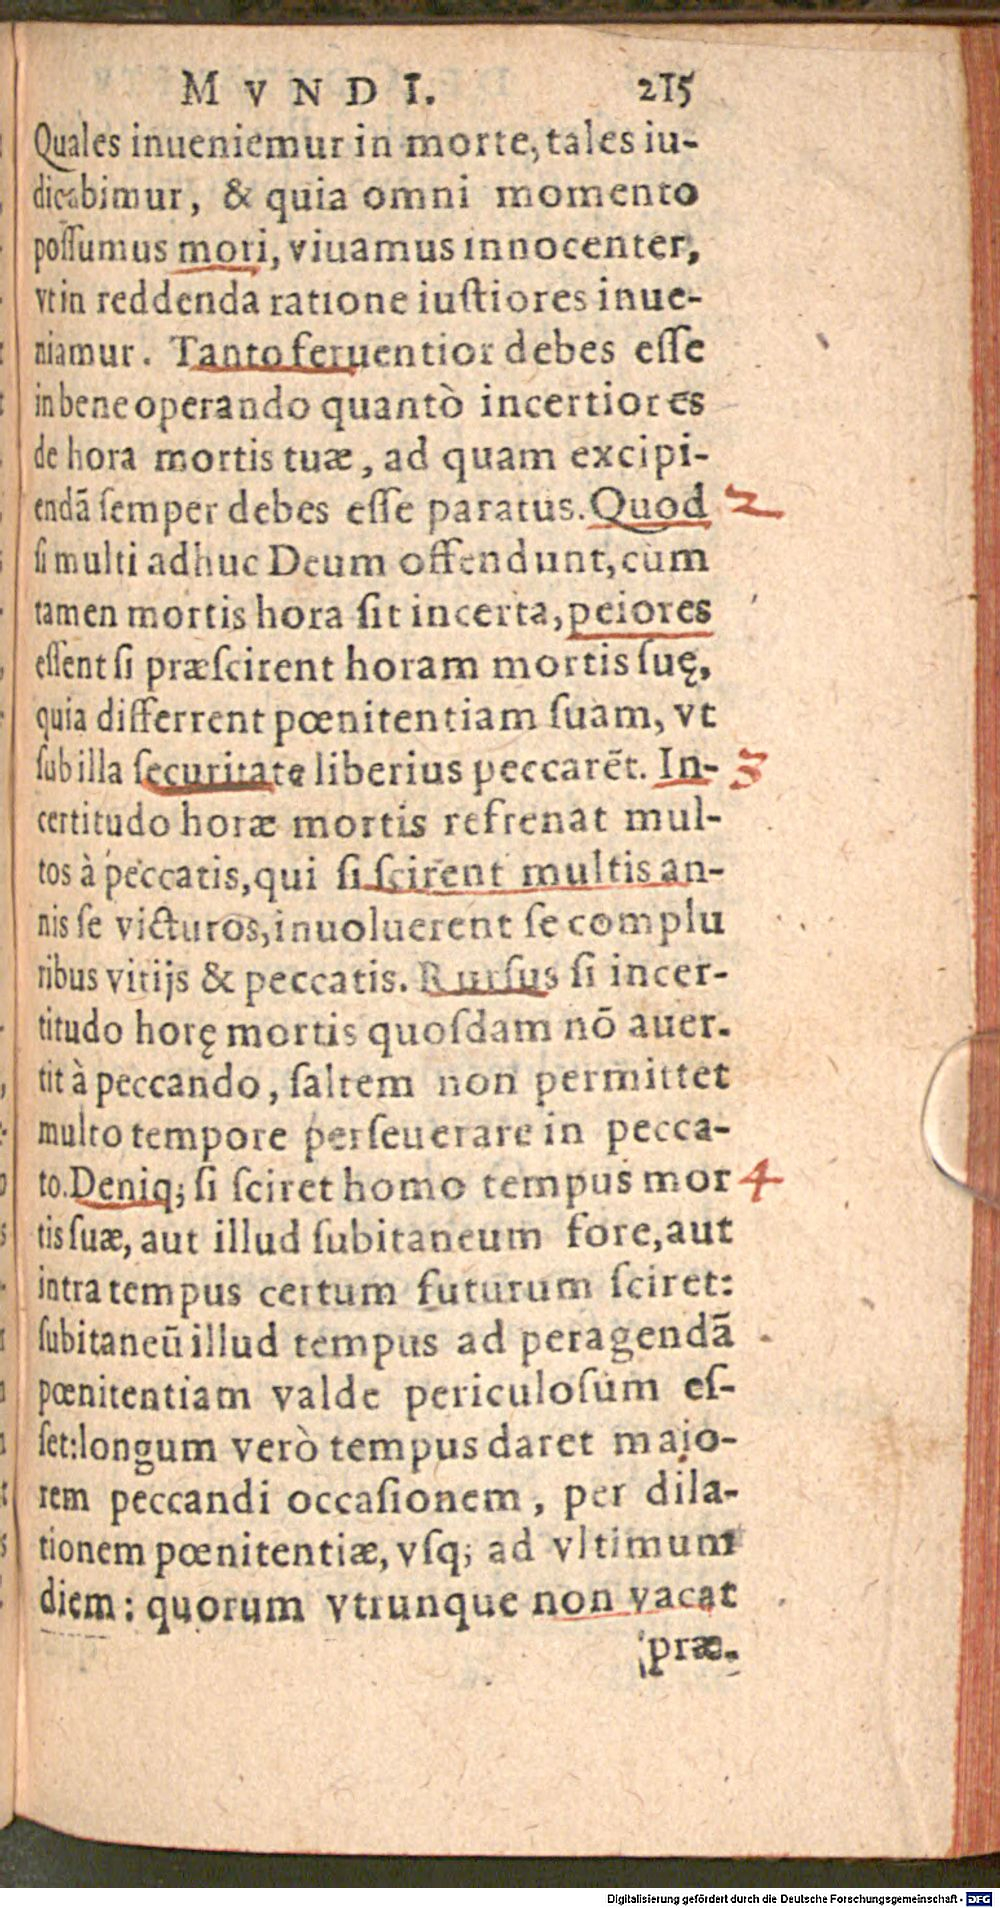 MVNDI. 215
Quales inueniemur in morte, tales iu-
dicabimur, & quia omni momento
possumus mori, viuamus innocenter,
vt in reddenda ratione iustiores inue-
niamur. Tanto feruentior debes esse
in bene operando quantò incertior es
de hora mortis tuæ, ad quam excipi-
endã semper debes esse paratus. Quod 2
si multi adhuc Deum offendunt, cùm
tamen mortis hora sit incerta, peiores
essent si præscirent horam mortis suę,
quia differrent pœnitentiam suam, vt
sub illa securitate liberius peccarẽt. In- 3
certitudo horæ mortis refrenat mul-
tos à peccatis, qui si scirent multis an-
nis se victuros, inuoluerent se complu
ribus vitijs & peccatis. Rursus si incer-
titudo horę mortis quosdam nõ auer-
tit à peccando, saltem non permittet
multo tempore perseuerare in pecca-
to. Deniq; si sciret homo tempus mor 4
tis suæ, aut illud subitaneum fore, aut
intra tempus certum futurum sciret:
subitaneũ illud tempus ad peragendã
pœnitentiam valde periculosum es-
set: longum verò tempus daret maio-
rem peccandi occasionem, per dila-
tionem pœnitentiæ, vsq; ad vltimum
diem: quorum vtrunque non vacat
præ-
Digitalisierung gefördert durch die Deutsche Forschungsgemeinschaft - DFG